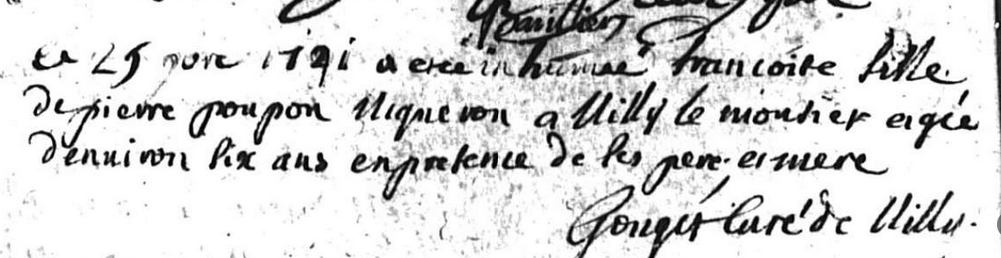 Le 25 9bre 1721 a eté inhumeé francoise fille
de pierre poupon Vigneron a Villy le moutier ergée
d'enuiron six ans en presence de ses pere et mere
Gouget Curé de Villy.